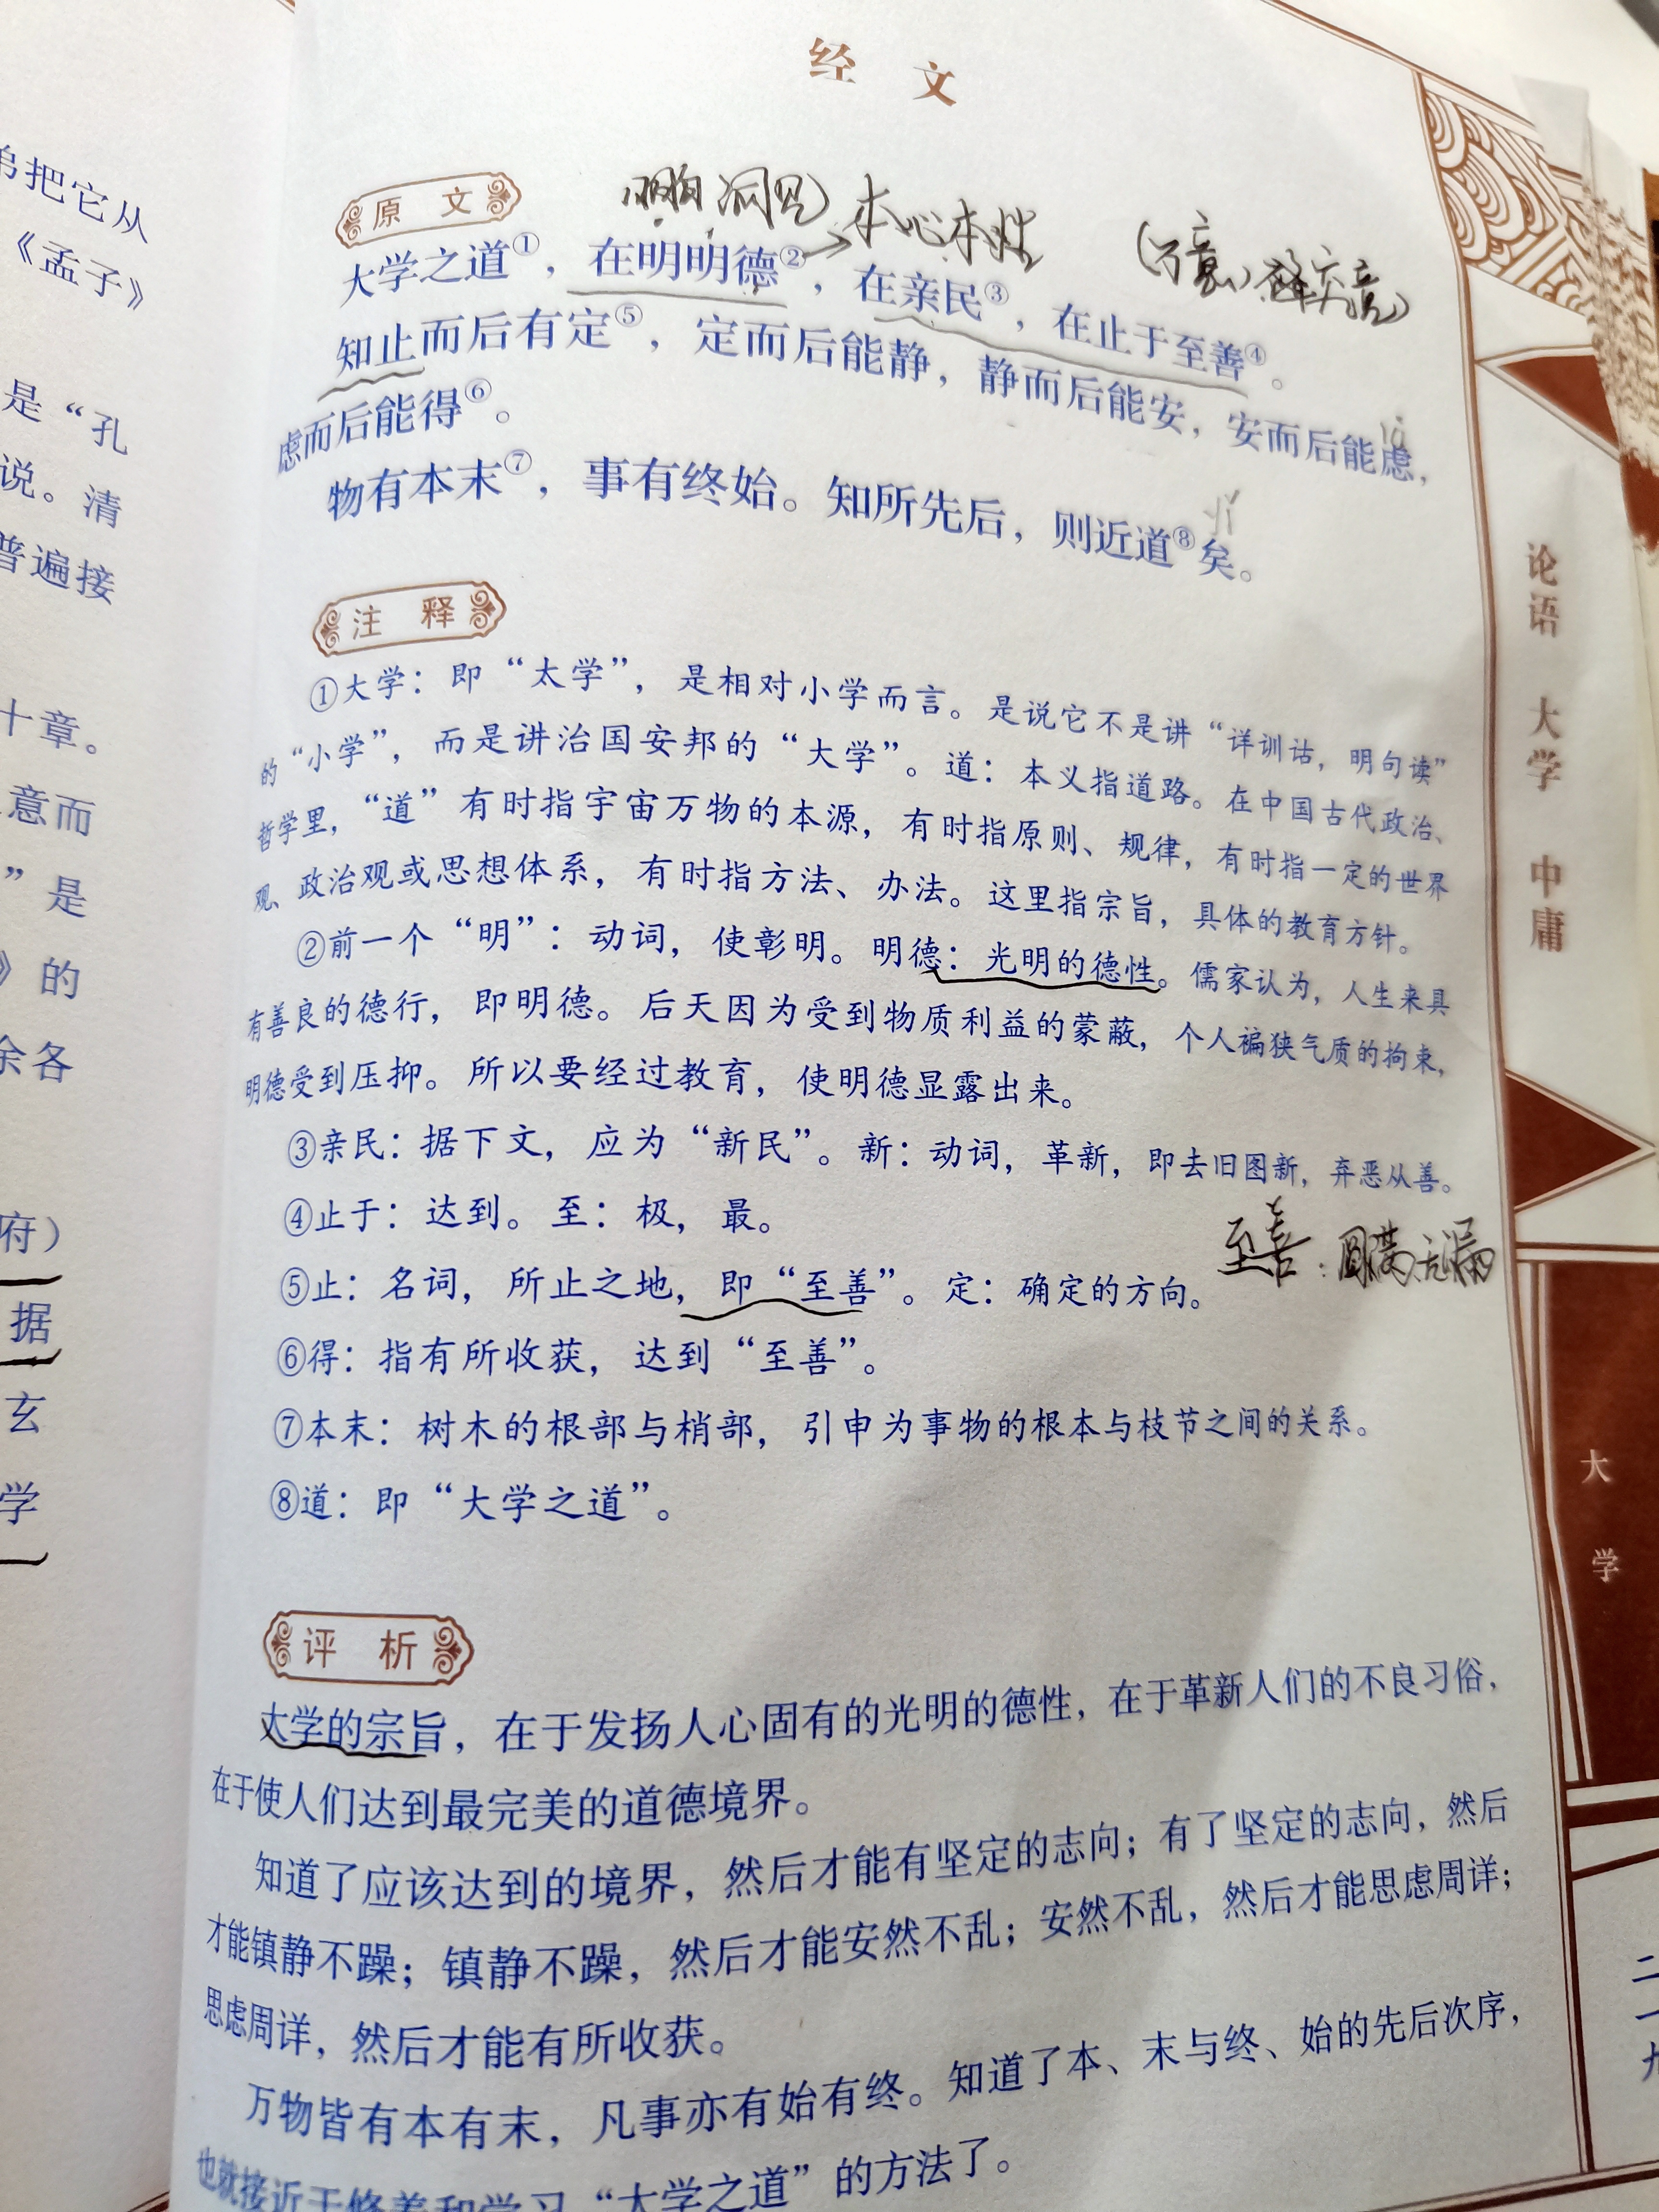 弟把它从
《孟子》
是“孔
说。清
普遍接
十章。
意而
”是
》的
余各
府）
据
玄
学
经 文
原 文
洞见
本心本性
大学之道①，在明明德②，在亲民③，在止于至善④。
知止而后有定⑤，定而后能静，静而后能安，安而后能虑，
lǜ
虑而后能得⑥。
物有本末⑦，事有终始。知所先后，则近道⑧矣。
yǐ
注 释
①大学：即“太学”，是相对小学而言。是说它不是讲“详训诂，明句读”
的“小学”，而是讲治国安邦的“大学”。道：本义指道路。在中国古代政治、
哲学里，“道”有时指宇宙万物的本源，有时指原则、规律，有时指一定的世界
观、政治观或思想体系，有时指方法、办法。这里指宗旨，具体的教育方针。
②前一个“明”：动词，使彰明。明德：光明的德性。儒家认为，人生来具
有善良的德行，即明德。后天因为受到物质利益的蒙蔽，个人褊狭气质的拘束，
明德受到压抑。所以要经过教育，使明德显露出来。
③亲民：据下文，应为“新民”。新：动词，革新，即去旧图新，弃恶从善。
④止于：达到。至：极，最。
至善：圆满无漏
⑤止：名词，所止之地，即“至善”。定：确定的方向。
⑥得：指有所收获，达到“至善”。
⑦本末：树木的根部与梢部，引申为事物的根本与枝节之间的关系。
⑧道：即“大学之道”。
评 析
大学的宗旨，在于发扬人心固有的光明的德性，在于革新人们的不良习俗，
在于使人们达到最完美的道德境界。
知道了应该达到的境界，然后才能有坚定的志向；有了坚定的志向，然后
才能镇静不躁；镇静不躁，然后才能安然不乱；安然不乱，然后才能思虑周详；
思虑周详，然后才能有所收获。
万物皆有本有末，凡事亦有始有终。知道了本、末与终、始的先后次序，
也就接近于修养和学习“大学之道”的方法了。
论语 大学 中庸
大学
二一九